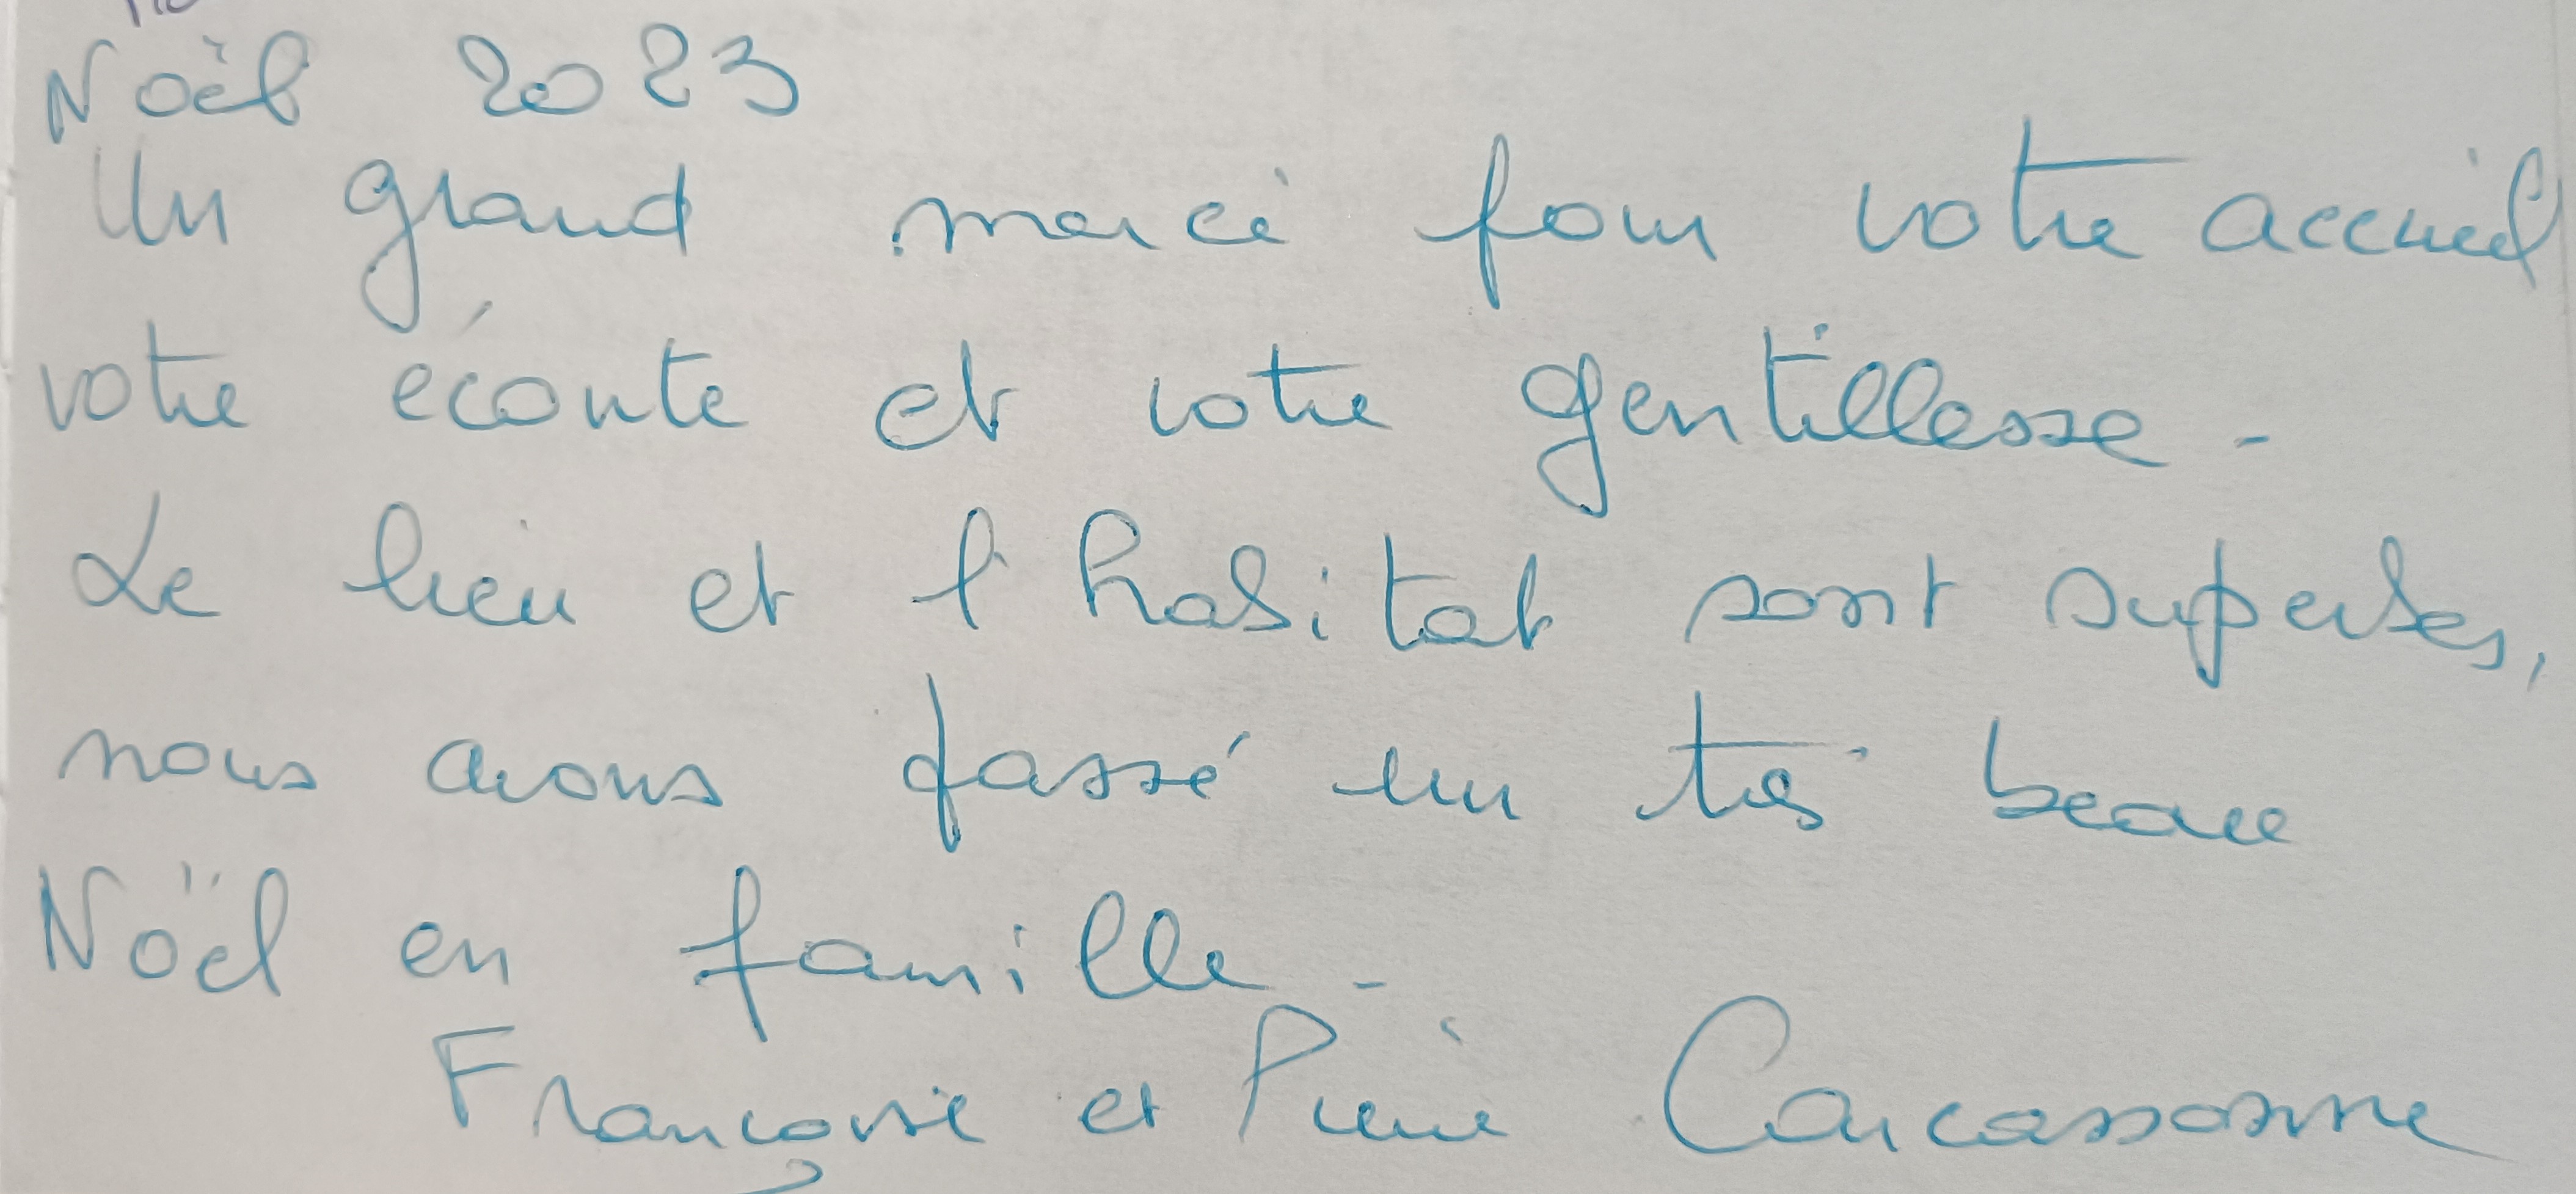 Noël 2023
Un grand merci pour votre accueil
votre écoute et votre gentillesse -
Le lieu et l'habitat sont superbes,
nous avons passé un très beau
Noël en famille -
Françoise et Pierre Carcassonne